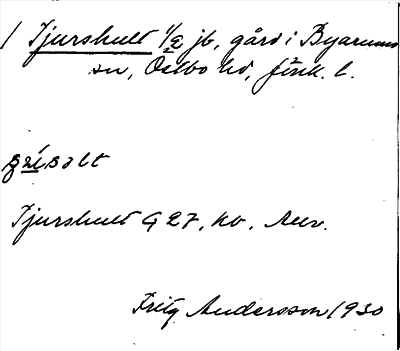 1 Tjurshult 1/2 jb, gård i Byarums
sn, Östbo hd, Jönk. l.
Tjurshult G 27, kb.
Fritz Andersson 1930